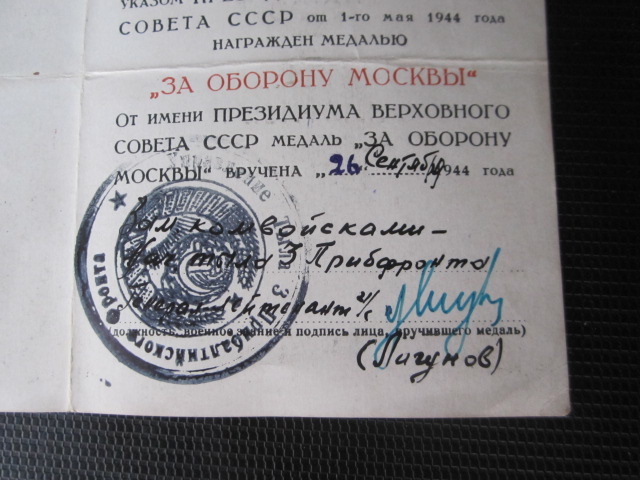 УКАЗОМ
СОВЕТА СССР от 1-го мая 1944 года
НАГРАЖДЕН МЕДАЛЬЮ
„ЗА ОБОРОНУ МОСКВЫ“
От имени ПРЕЗИДИУМА ВЕРХОВНОГО
СОВЕТА СССР медаль „ЗА ОБОРОНУ
МОСКВЫ“ вручена „26 Сентября 1944 года
Зам комвойсками —
Нач тыла 3 Прибфронта
лейтенант и/с
(должность, военное звание и подпись лица, вручившего медаль)
(Лигунов)
Управление Тыла 3 Прибалтийского Фронта